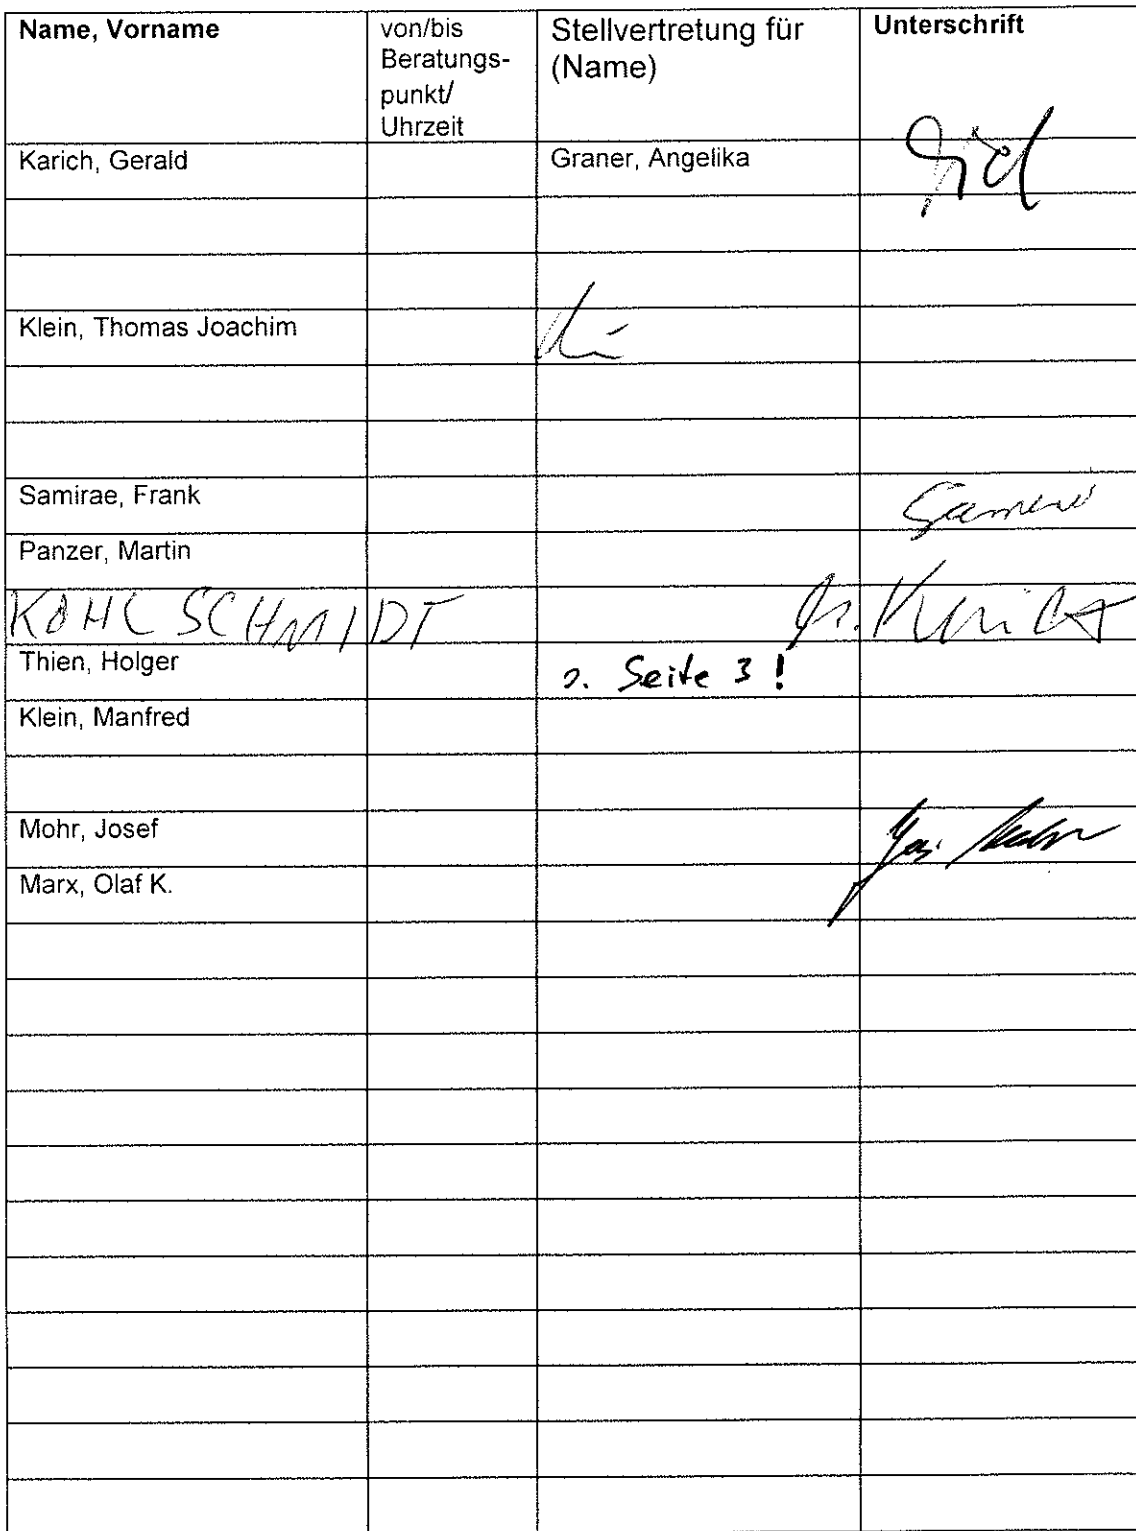 Name, Vorname
von/bis
Beratungs-
punkt/
Uhrzeit
Stellvertretung für
(Name)
Unterschrift
Karich, Gerald
Graner, Angelika
Klein, Thomas Joachim
Samirae, Frank
Panzer, Martin
KOHLSCHMIDT
Thien, Holger
s. Seite 3 !
Klein, Manfred
Mohr, Josef
Marx, Olaf K.